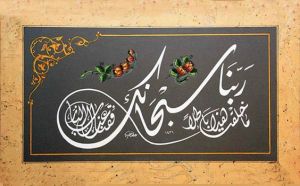 ربنا
ما خلقت هذا باطلا
سبحانك
فقنا عذاب النار